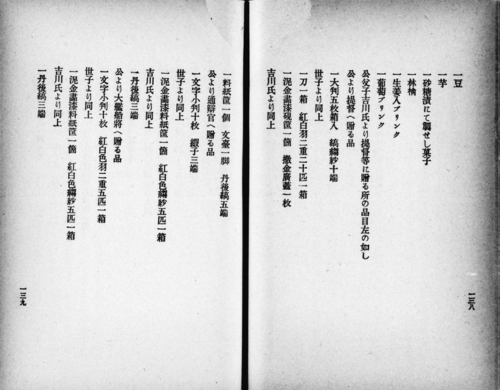 一豆
一芋
一砂糖漬にて製せし菓子
一林檎
一生姜入プリンク
一葡萄プリンク
公父子吉川氏より提督等に贈る所の品目左の如し
公より提督へ贈る品
一大判五枚箱入 縞縮紗十端
世子より同上
一刀一箱 紅白羽二重二十匹一箱
吉川氏より同上
一泥金畫漆硯筐一箇 撒金廣蓋一枚
一三八
一料紙筐一個 文臺一脚 丹後縞五端
公より通辯官へ贈る品
一文字小判十枚 緞子三端
世子より同上
一泥金畫漆料紙筐一箇 紅白色縮紗五匹一箱
吉川氏より同上
一丹後縞三端
公より大艦船將へ贈る品
一文字小判十枚 紅白色羽二重五匹一箱
世子より同上
一泥金畫漆料紙筐一箇 紅白色縮紗五匹一箱
吉川氏より同上
一丹後縞三端
一三九